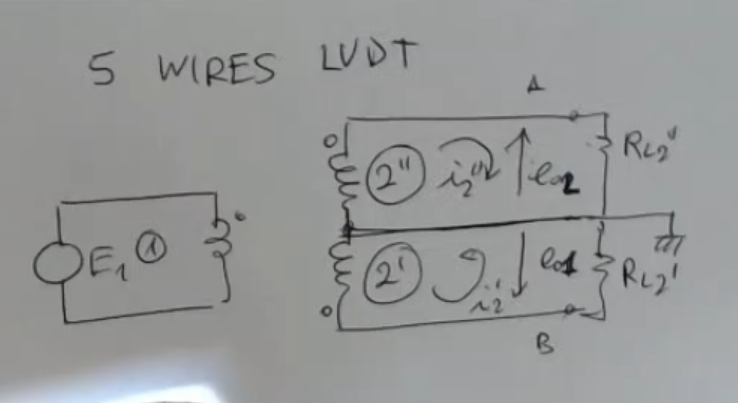 5 WIRES LVDT
A
2" i₂" e₀₂ R_L2"
E₁ 1
2' i₂' e₀₁ R_L2'
B